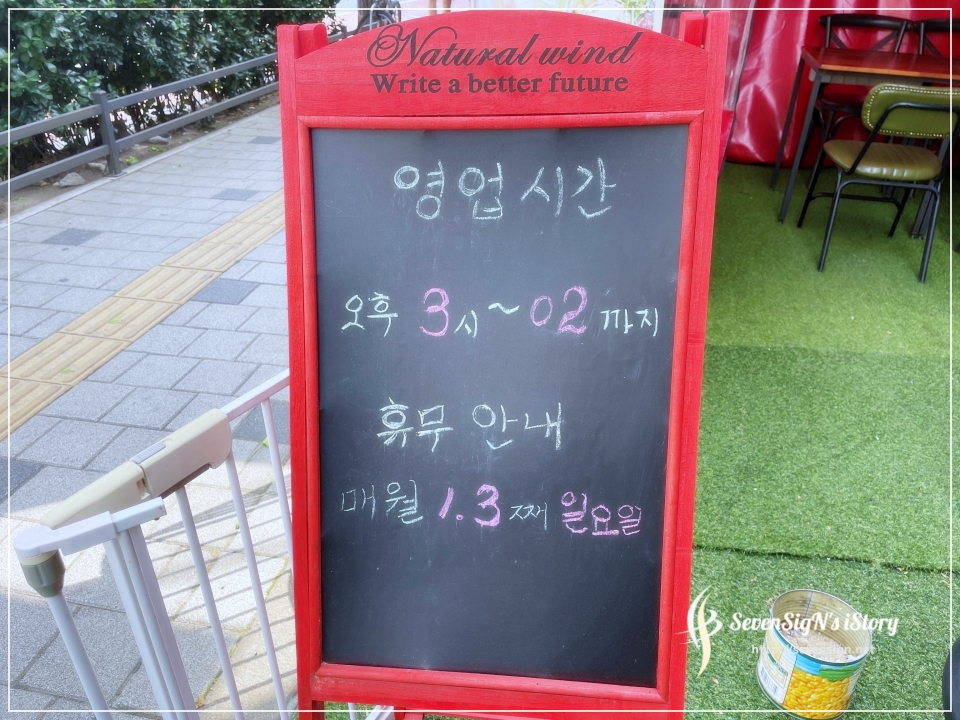 Natural wind
Write a better future
영업시간
오후 3시~02까지
휴무 안내
매월 1.3째 일요일
SevenSigN's iStory